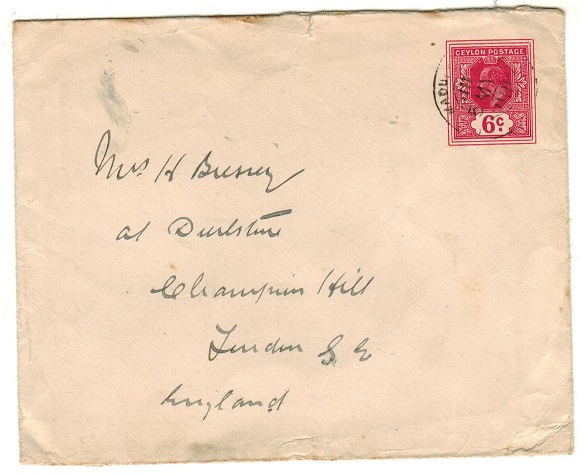 CEYLON POSTAGE
6c.
Mrs H Bressey
at Durlstone
Champion Hill
London S E
England